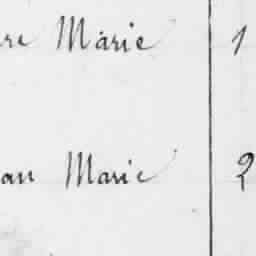 re Marie 1
an Marie 2